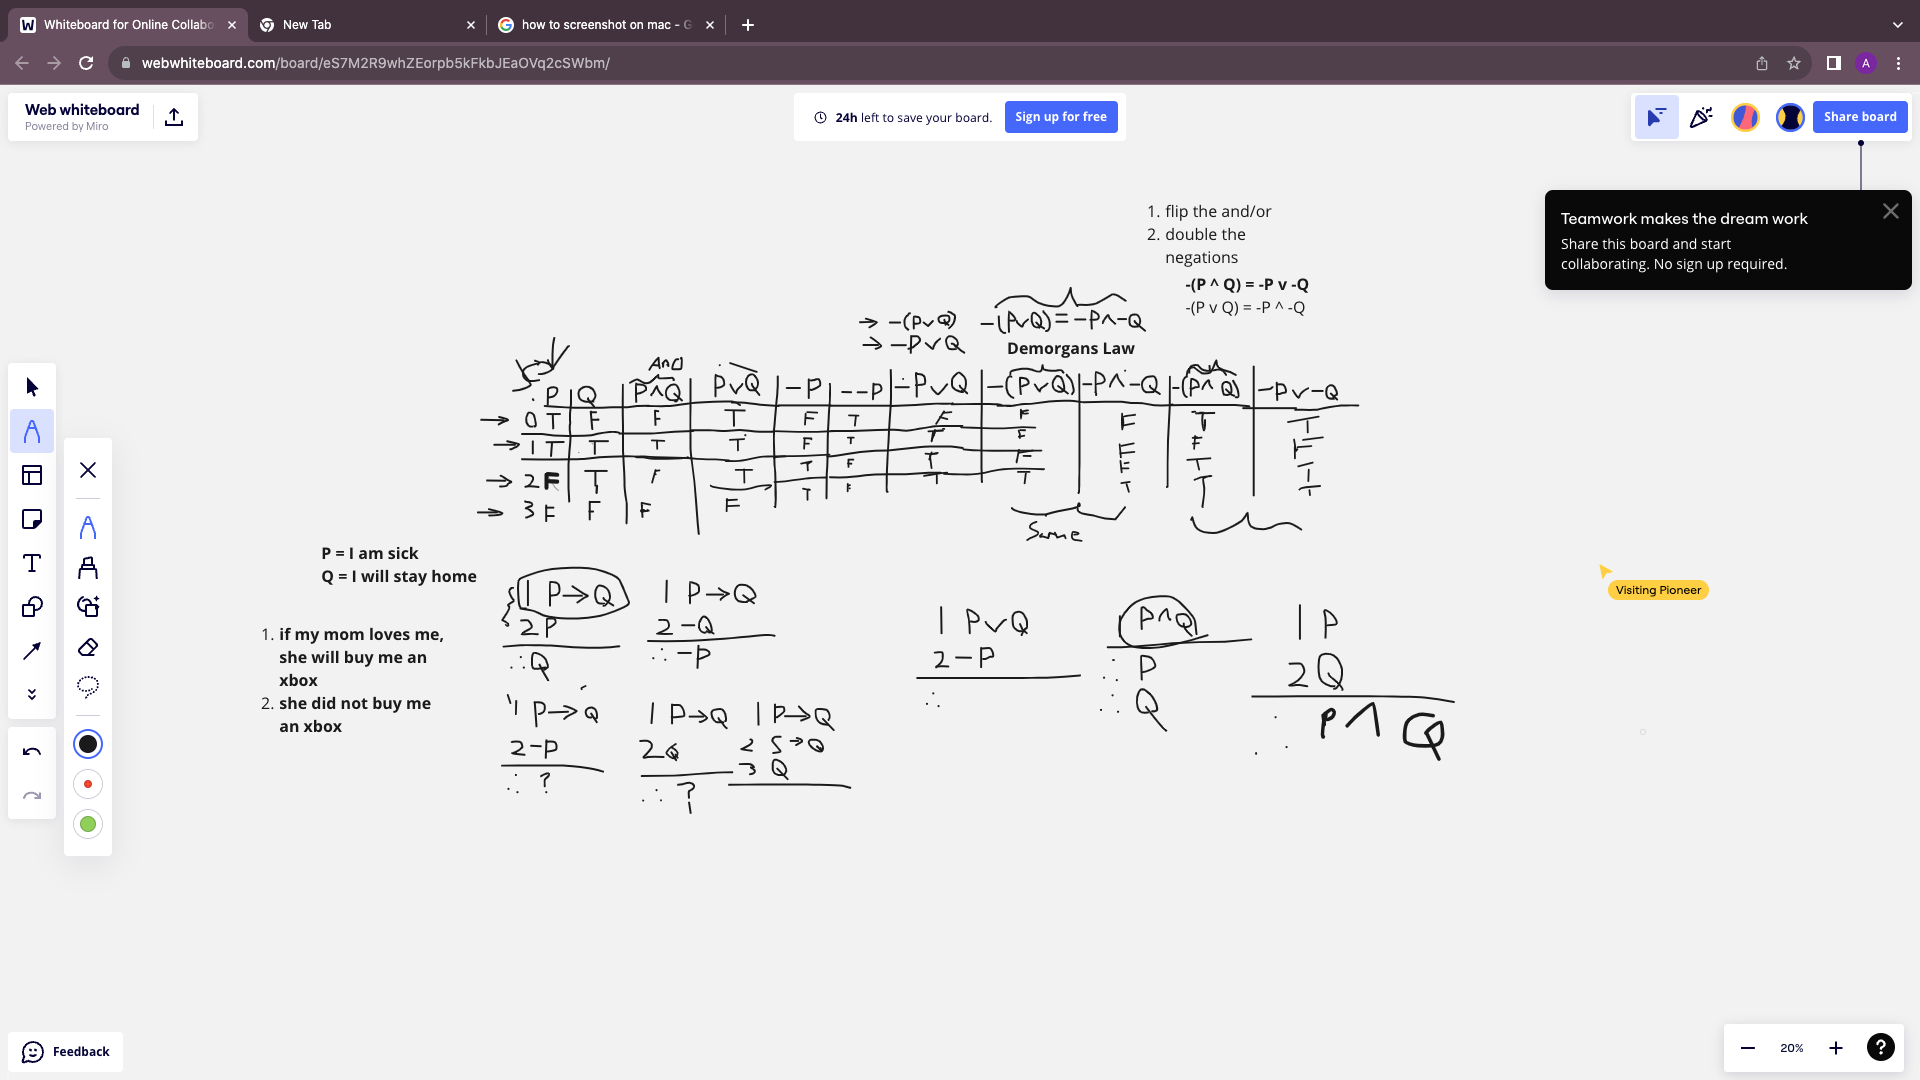 Whiteboard for Online Collabo
New Tab
how to screenshot on mac - G
webwhiteboard.com/board/eS7M2R9whZEorpb5kFkbJEaOVq2cSWbm/
A
Web whiteboard
Powered by Miro
24h left to save your board.
Sign up for free
Share board
Teamwork makes the dream work
Share this board and start
collaborating. No sign up required.
1. flip the and/or
2. double the
negations
-(P ^ Q) = -P v -Q
-(P v Q) = -P ^ -Q
→ -(P∨Q) -(P∨Q) = -P∧-Q
→ -P∨Q
Demorgans Law
And
P Q P∧Q P∨Q -P --P -P∨Q -(P∨Q) -P∧-Q -(P∧Q) -P∨-Q
→ 0 T F F T F T F F F T T
→ 1 T T T T F T T F F F F
→ 2 F T F T T F T F F T T
→ 3 F F F F T F T T T T T
Same
P = I am sick
Q = I will stay home
1. if my mom loves me,
she will buy me an
xbox
2. she did not buy me
an xbox
1 P→Q
2 P
∴ Q
1 P→Q
2 -Q
∴ -P
1 P→Q
2 -P
∴ ?
1 P→Q
2 Q
∴ ?
1 P→Q
2 S→Q
3 Q
1 P∨Q
2 -P
∴
P∧Q
∴ P
∴ Q
1 P
2 Q
∴ P∧Q
Visiting Pioneer
Feedback
20%